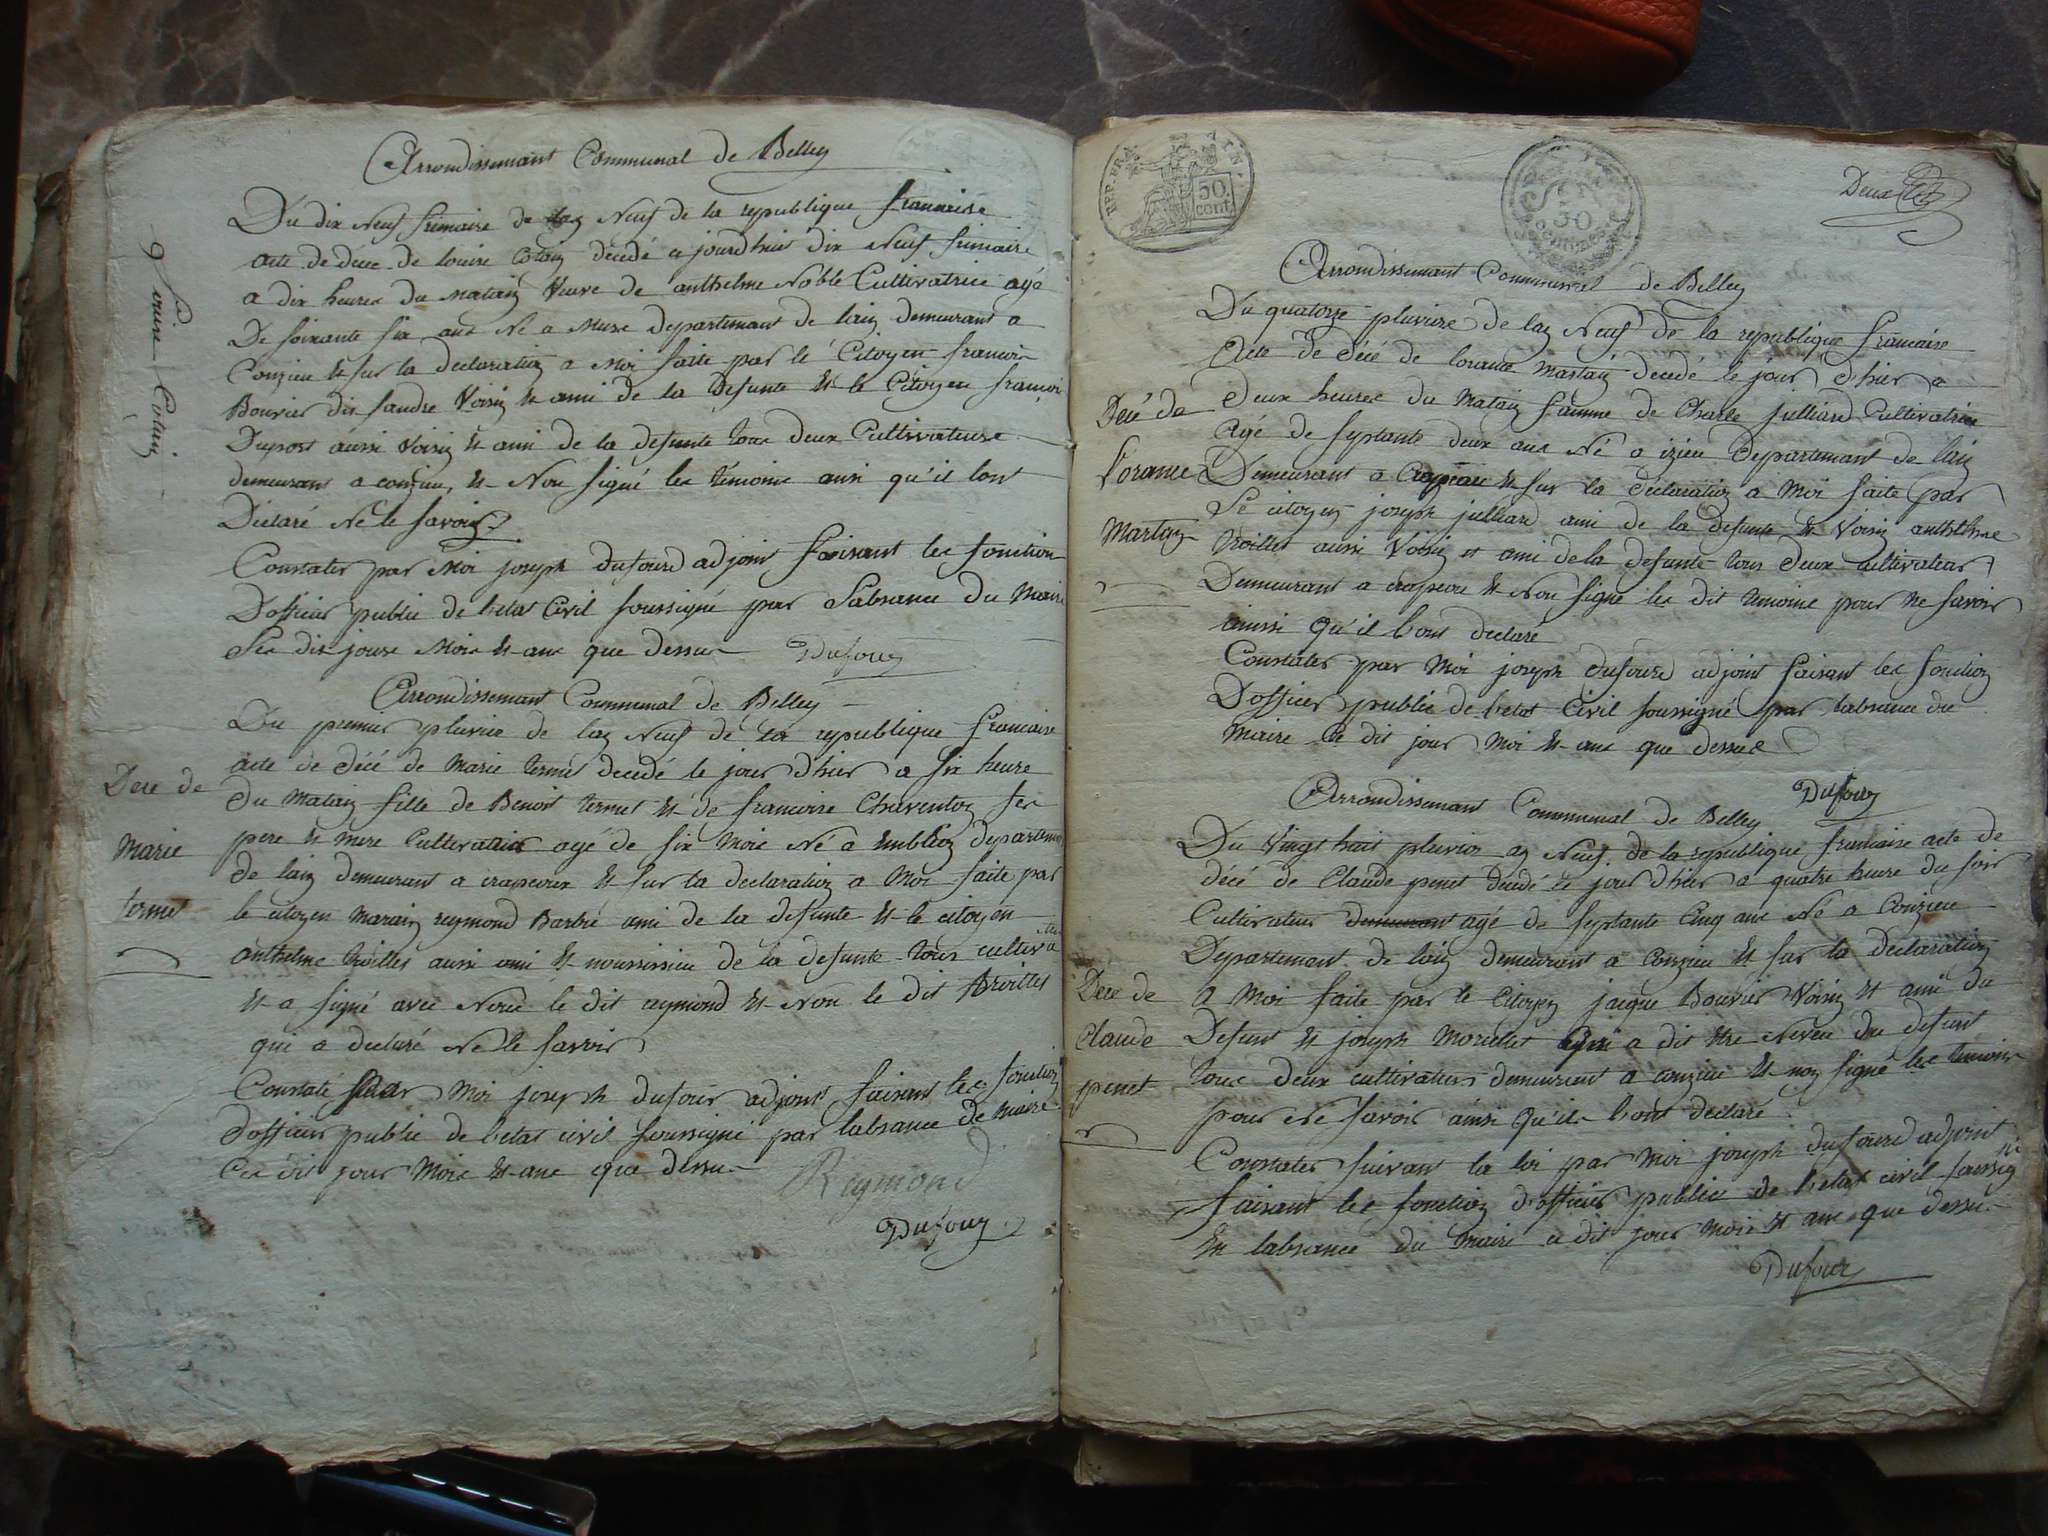 Louise Cotin
Arrondissemant Communal de Belley
Du dix Neuf frimaire de lan Neuf de la republique francaise
acte de décé de louise Cotin décédé ce jourdhui dix Neuf frimaire
a dix heures du matain Veuve de anthelme Noble Cultivatrice agé
De soixante six ans Né a departemant de lain demeurant a
Conzieu et sur la declaration a Moi faite par le Citoyen francois
Bouvier dit Voisin et ami de la defunte et le Citoyen francoi
Dupost aussi Voisin et ami de la defunte tous deux Cultivateurs
demeurant a conzieu, et Non signé les témoins ainsi qu'il lont
Déclaré Né le savoir
Constater par Moi joseph dufourd adjoint faisant les fonction
D'officier public de letat Civil soussigné par labsance du Maire
Les dit jours Mois et ans que dessus Dufour
Arrondissemant Communal de Belley
Du premier pluviose de lan Neuf de la republique francaise
acte de décé de Marie termet decedé le jour d'hier a six heure
Du Matain fille de Benoit termet et de francoise Charventon ses
pere et mere Cultivateurs agé de six Mois Né a departemen
de lain demeurant a crapeoux et sur la declaration a Moi faite par
le citoyen reymond Barbié ami de la defunte et le citoyen
anthelme troilles aussi ami et nourrissieu de la defunte tous cultiva
teu
et a signé avec Nous le dit reymond et Non le dit troilles
qui a declaré Ne le savoir
Constaté par Moi joseph dufour adjoint faisant les fonction
d'officier public de letat civil soussigné par labsance de Maire
Ce dit jour Mois et ans que dessus Reymond
Dufour
Dece de
Marie
termet
REP. FRA.
50
cent.
50
centimes
Deux
Arrondissemant Communal de Belley
Du quatorze pluviose de lan Neuf de la republique francaise
Acte de décé de lorance Martain décédé le jour d'hier a
Deux heures du Matain famme de Charle julliard Cultivatrice
Agé de septante deux ans Né a izieu Departemant de lain
Demeurant a et sur la déclaration a Moi faite par
Le citoyen joseph julliard ami de la defunte et Voisin anthelme
troillet aussi Voisin et ami de la defunte tous deux cultivateur
Demeurant a crapeoux et Non signé les dit temoins pour ne savoir
ainsi qu'il lont declaré
Constater par Moi joseph dufourd adjoint faisant les fonction
D'officier public de letat Civil soussigné par labsance du
Maire le dit jour Moi et ans que dessus
Dufour
Decé de
lorance
Martain
Arrondissemant Communal de Belley
Du Vingt huit pluvios an Neuf de la republique francaise acte de
décé de Claude penet décédé le jour d'hier a quatre heure du soir
Cultivateur demeurant agé de septante Cinq ans Né a Conzieu
Departemant de lain demeurant a Conzieu et sur la declaration
a Moi faite par le Citoyen jacque Bouvier Voisin et ami du
Defunt et joseph Morellet qui a dit etre Neveu du defunt
tous deux cultivateurs demeurant a conzieu et non signé les temoins
pour ne savoir ainsi qu'ils lont declaré
Constater suivant la loi par Moi joseph dufourd adjoint
faisant les fonction d'officier public de letat civil soussig
né
En labsance du Maire ce dit jour Mois et ans que dessus
Dufour
Dece de
Claude
penet